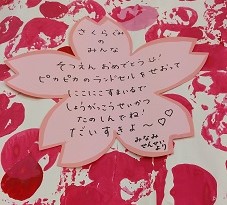 さくらぐみ
の
みんな
そつえん おめでとう
ピカピカのランドセルをせおって
にこにこすまいるで
しょうがっこうせいかつ
たのしんでね!
だいすきよ〜♡♡
みなみ
せんせい
より